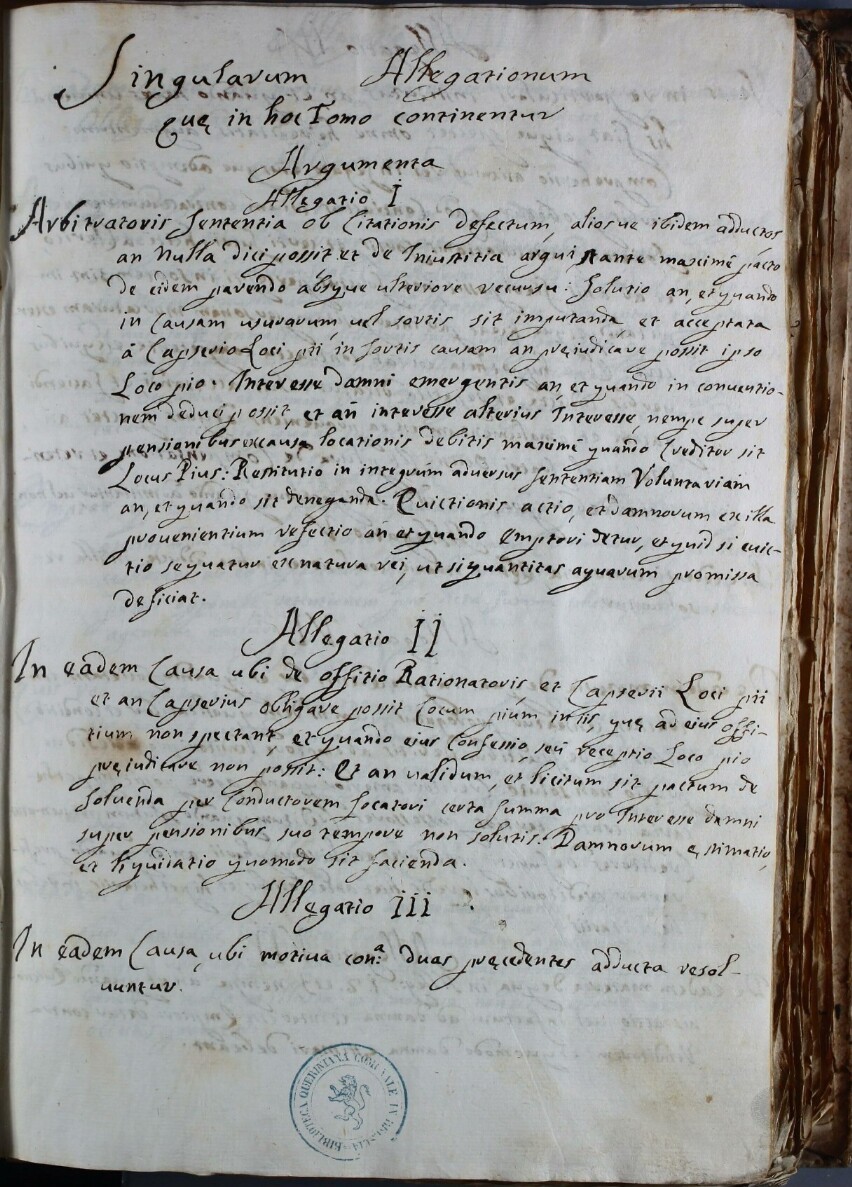 Singularum Allegationum
Quę in hoc Tomo continentur
Argumenta
Allegatio I
Arbitratoris Sententia ob Citationis defectum, aliosue ibidem adductos
an Nulla dici possit et de Iniustitia argui stante maximè pacto
de eidem parendo absque ulteriore recursu: Solutio an, et quando
in Causam usurarum, uel sortis sit imputanda, et acceptata
à Capserio Loci pii, in sortis causam an pręiudicare possit ipso
Loco pio. Interesse damni emergentis an, et quando in conuentio-
nem deduci possit, et an interesse alterius Interesse, nempe super
pensionibus ex causa locationis debitis maximè quando Creditor sit
Locus Pius: Restitutio in integrum aduersus Sententiam Voluntariam
an, et quando sit deneganda. Euictionis actio, et damnorum ex illa
prouenientium refectio an et quando Emptori detur, et quid si euic-
tio sequatur ex natura rei, ut si quantitas aquarum promissa
deficiat.
Allegatio II
In eadem Causa ubi de offitio Rationatoris, et Capserii Loci pii
et an Capserius obligare possit Locum pium in iis, quę ad eius offi-
tium non spectant, et quando eius Confessio, seu receptio Loco pio
pręiudicare non possit: Et an ualidum, et licitum sit pactum de
soluenda per Conductorem Locatori certa summa pro Interesse damni
super pensionibus suo tempore non solutis. Damnorum ęstimatio,
et liquidatio quomodo sit facienda.
Allegatio III
In eadem Causa, ubi motiua con:ᵃ duas pręcedentes adducta resol-
uuntur.
BIBLIOTECA QUERINIANA COMUNALE IN BRESCIA